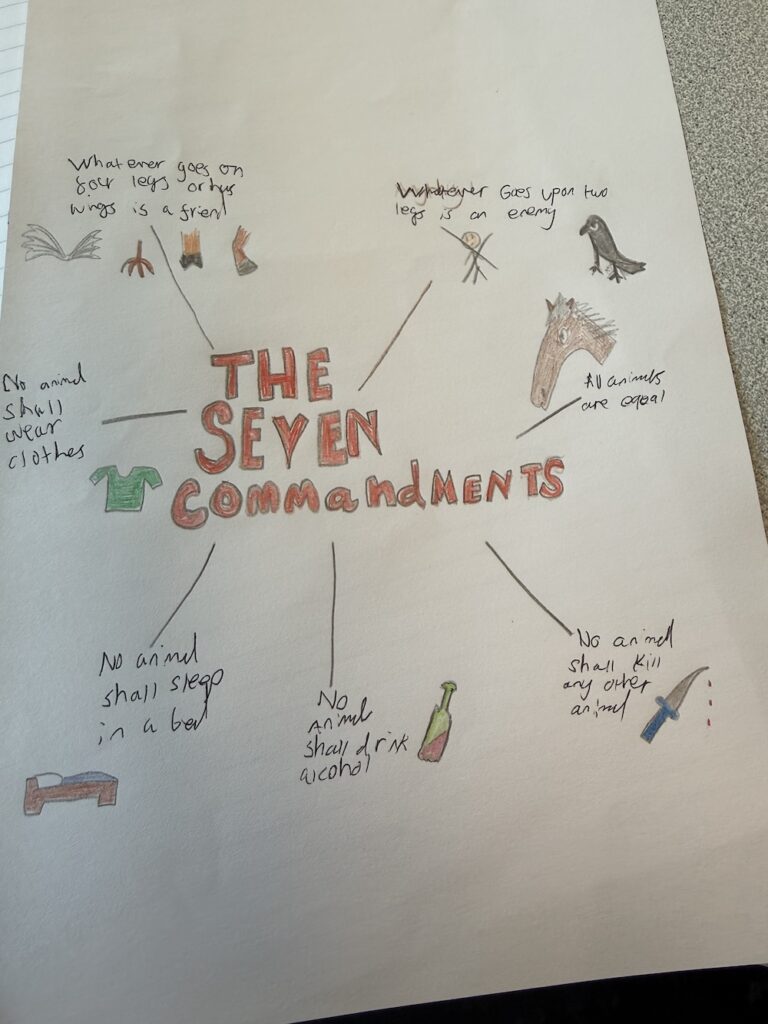 Whatever goes on
four legs or has
wings is a friend
Whatever Goes upon two
legs is an enemy
THE
SEVEN
COMMaNdMENTS
All animals
are equal
No animal
shall
wear
clothes
No animal
shall sleep
in a bed
No
Animal
shall drink
alcohol
No animal
shall Kill
any other
animal